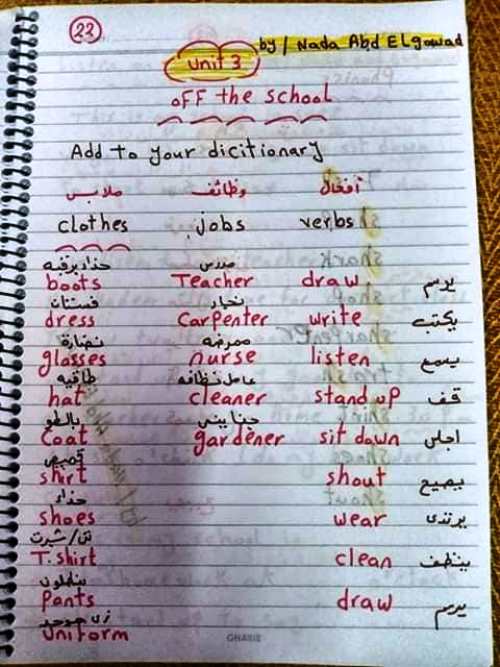 23
by / Nada Abd Elgawad
Unit 3
oFF the school
Add to your dicitionary
ملابس وظائف أفعال
clothes jobs verbs
حذاء برقبه مدرس
boots Teacher draw يرسم
فستان نجار
dress carpenter write يكتب
نضارة ممرضه
glasses nurse listen يسمع
طاقيه عامل نظافه
hat cleaner stand up قف
بالطو جنايني
coat gardener sit down اجلس
قميص
shirt shout يصيح
حذاء
shoes wear يرتدى
تى/شيرت
T.shirt clean ينظف
بنطلون
pants draw يرسم
زى موحد
uniform